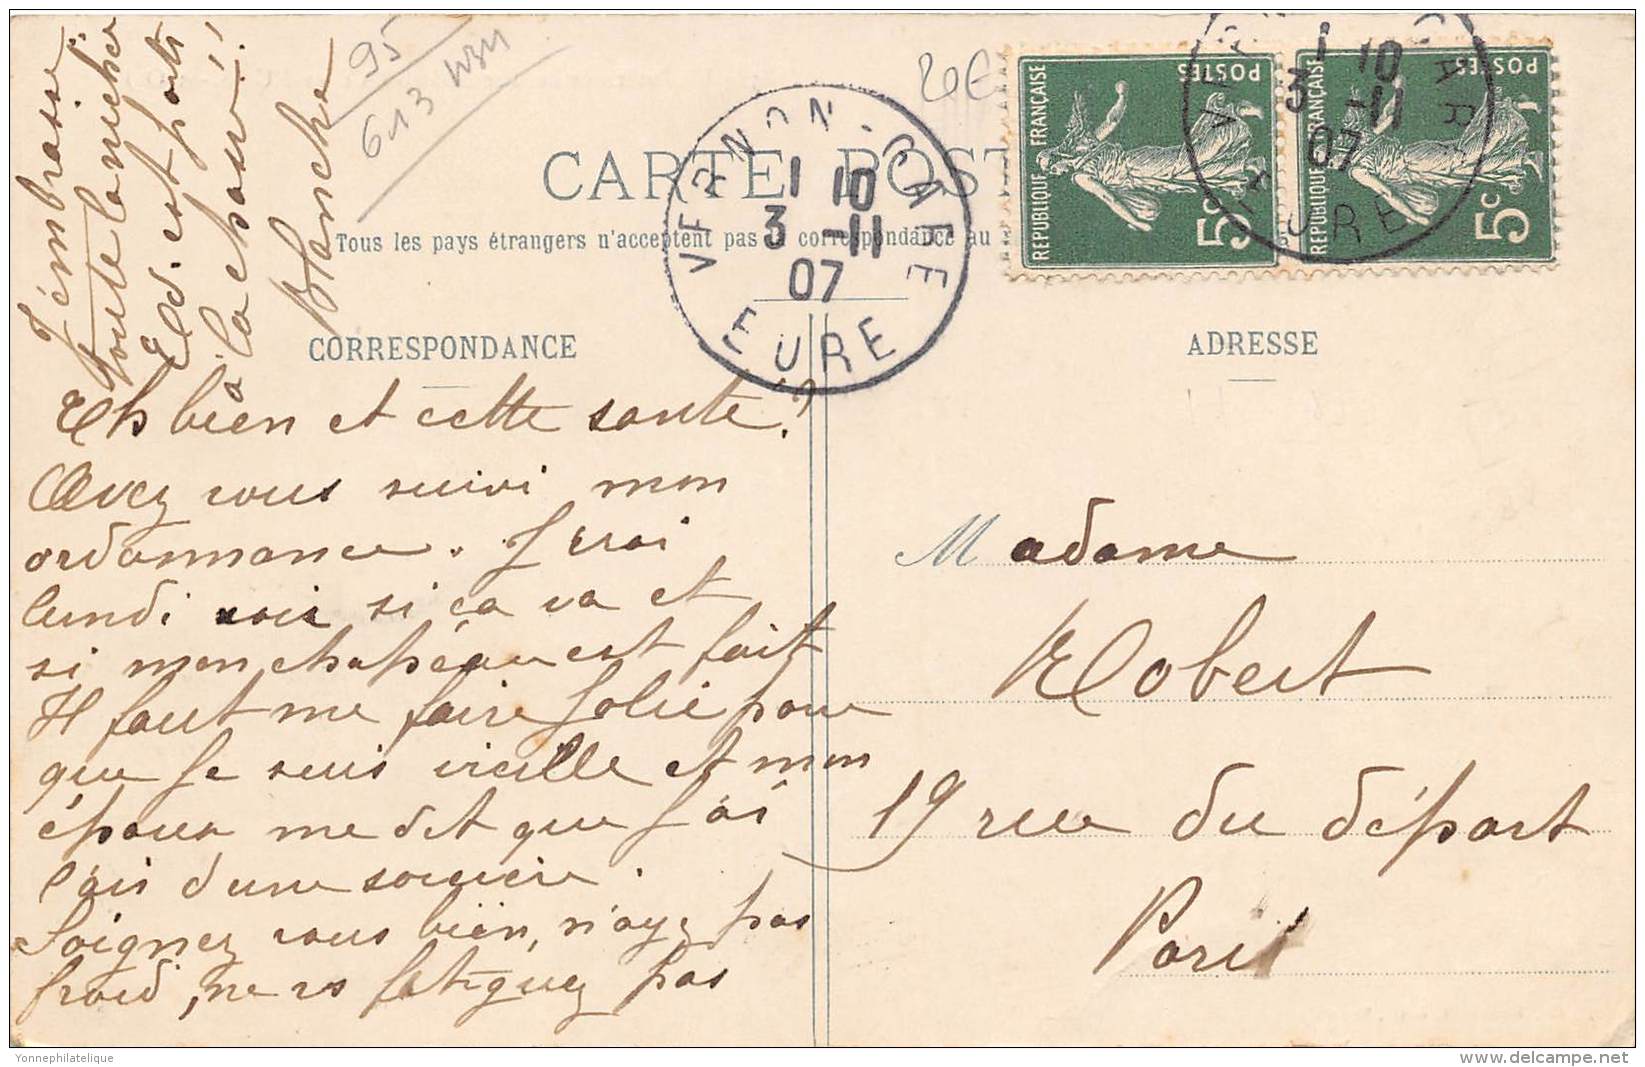 CARTE POST
Tous les pays étrangers n'acceptent pas la correspondance au
CORRESPONDANCE
ADRESSE
95
613
2€
VERNON-GARE
1 10
3 -11
07
EURE
REPUBLIQUE FRANÇAISE
POSTES
5c
REPUBLIQUE FRANÇAISE
POSTES
5c
1 10
3 -11
07
EURE
Eh bien et cette santé?
Avez vous suivi mon
ordonnance. J'irai
lundi voir si ça va et
si mon chapeau est fait
Il faut me faire jolie parce
que je suis vieille et mon
époux me dit que j'ai
l'air d'une sorcière.
Soignez vous bien, n'ayez pas
froid, ne vs fatiguez pas
J'embrasse
toute la nichée
Ed. est parti
à la chasse!
Blanche
Madame
Robert
19 rue du départ
Paris
Yonnephilatelique
www.delcampe.net